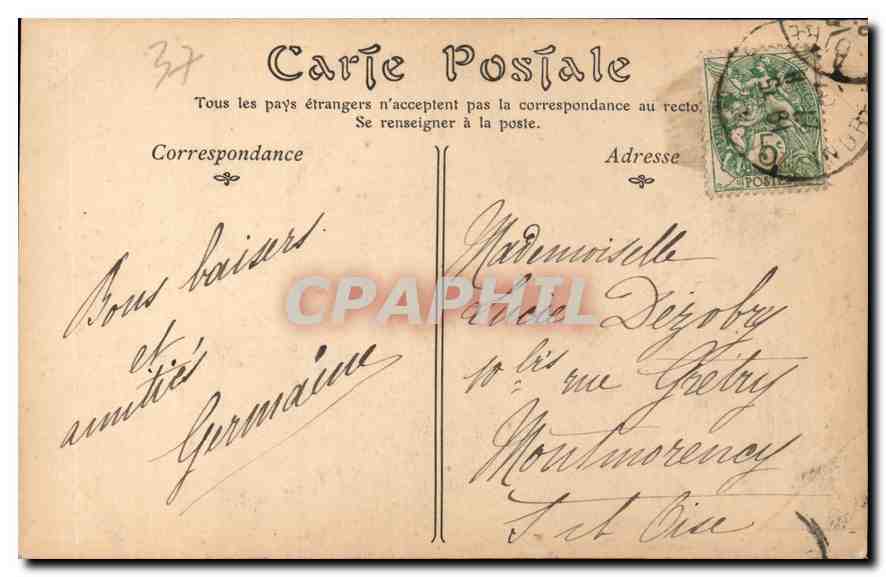 37
Carte Postale
Tous les pays étrangers n'acceptent pas la correspondance au recto.
Se renseigner à la poste.
Correspondance
Bons baisers
et
amitiés
Germaine
Adresse
Mademoiselle
Lucie Dezobry
10 bis rue Grétry
Montmorency
S et Oise
5
POSTES
CPAPHIL